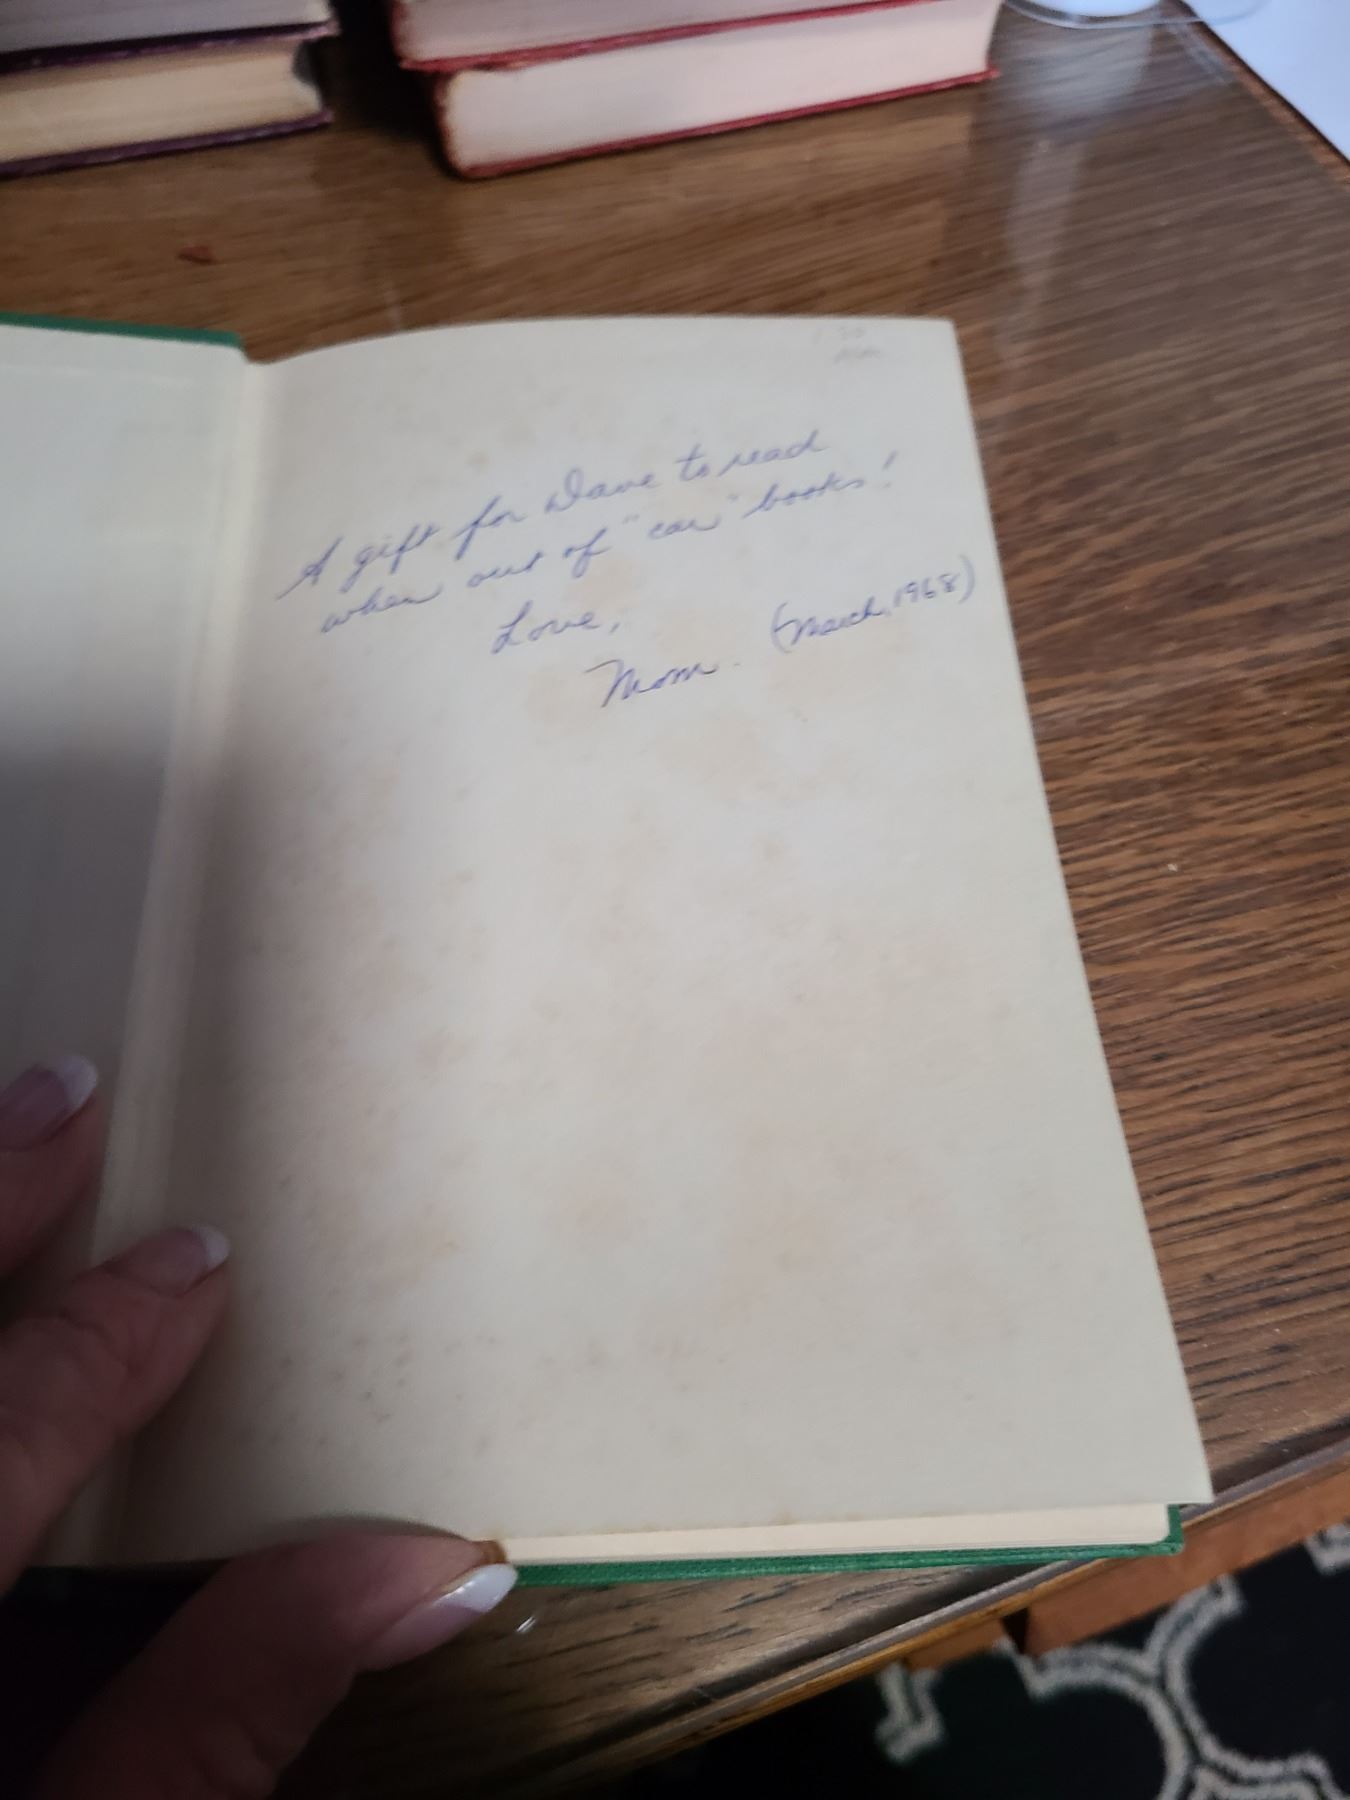 A gift for Dave to read
when out of "car" books!
Love,
Mom. (March, 1968)